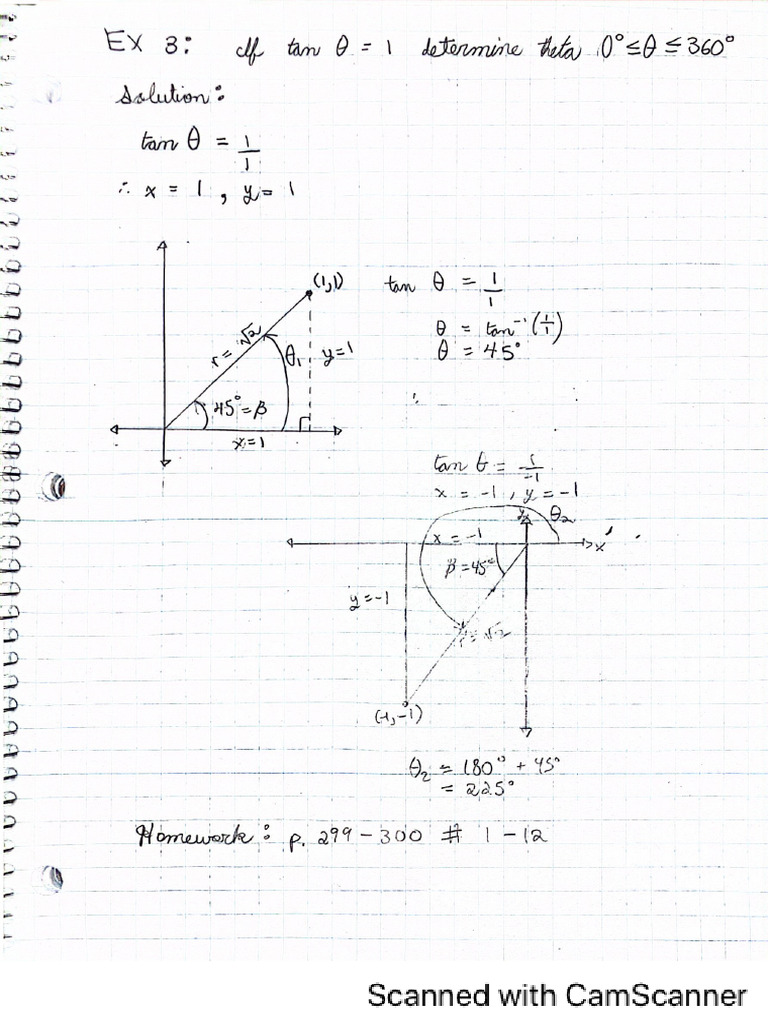 EX 3: If tan θ = 1 determine theta 0° ≤ θ ≤ 360°
Solution:
tan θ = 1/1
∴ x = 1 , y = 1
(1,1)
r = √2
θ₁
y = 1
45° = β
x = 1
tan θ = 1/1
θ = tan⁻¹ (1/1)
θ = 45°
x = -1 , y = -1
y
θ₂
x = -1
x
β = 45°
y = -1
r = √2
(-1, -1)
θ₂ = 180° + 45°
= 225°
Homework: p. 299 - 300 # 1 - 12
Scanned with CamScanner